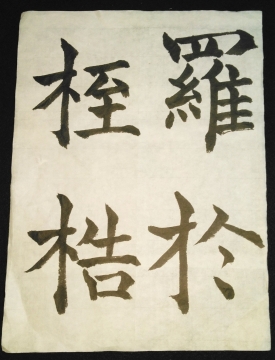 羅於
桎梏